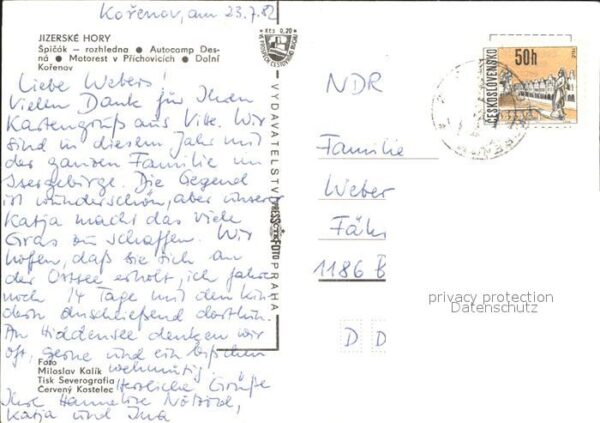 Kořenov, am 23.7.82
JIZERSKÉ HORY
Špičák – rozhledna ● Autocamp Des-
ná ● Motorest v Příchovicích ● Dolní
Kořenov
Liebe Webers!
Vielen Dank für Ihren
Kartengruß aus Vitte. Wir
sind in diesem Jahr mit
der ganzen Familie im
Isergebirge. Die Gegend
ist wunderschön, aber unserer
Katja macht das viele
Gras zu schaffen. Wir
hoffen, daß sie sich an
der Ostsee erholt, ich fahre
noch 14 Tage mit den Kin-
dern anschließend dorthin.
An Hiddensee denken wir
oft, gerne und ein bißchen
wehmütig!
Herzliche Grüße
Ihre Hannelore
Katja und
Foto
Miloslav Kalík
Tisk Severografia
Červený Kostelec
Kčs 0,20
VYDAVATELSTVÍ
PRESSFOTO
PRAHA
ČESKOSLOVENSKO
50h
NDR
Familie
Weber
1186 B
D D
privacy protection
Datenschutz